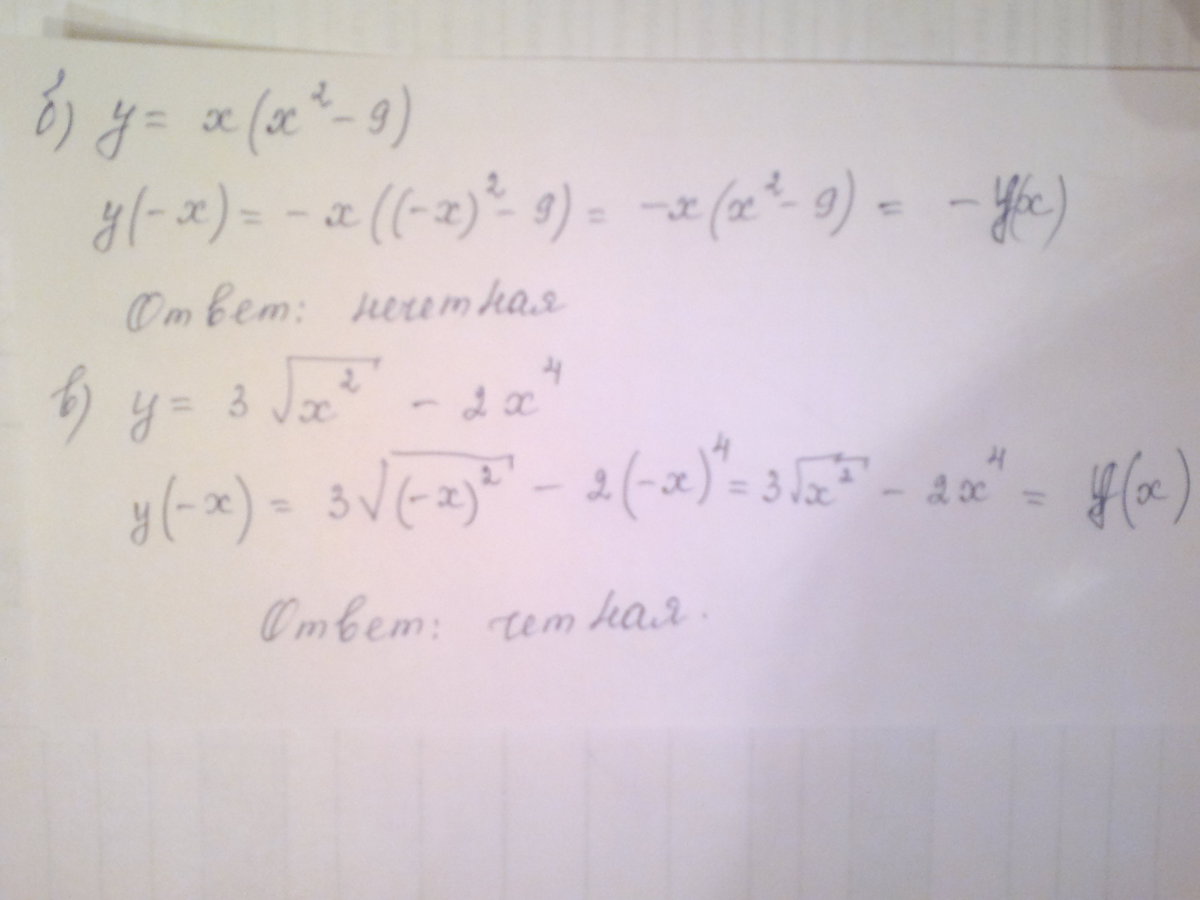 б) y = x(x² - 9)
y(-x) = - x((-x)² - 9) = -x(x² - 9) = - y(x)
Ответ: нечетная
в) y = 3 √x² - 2x⁴
y(-x) = 3√(-x)² - 2(-x)⁴ = 3√x² - 2x⁴ = y(x)
Ответ: четная.